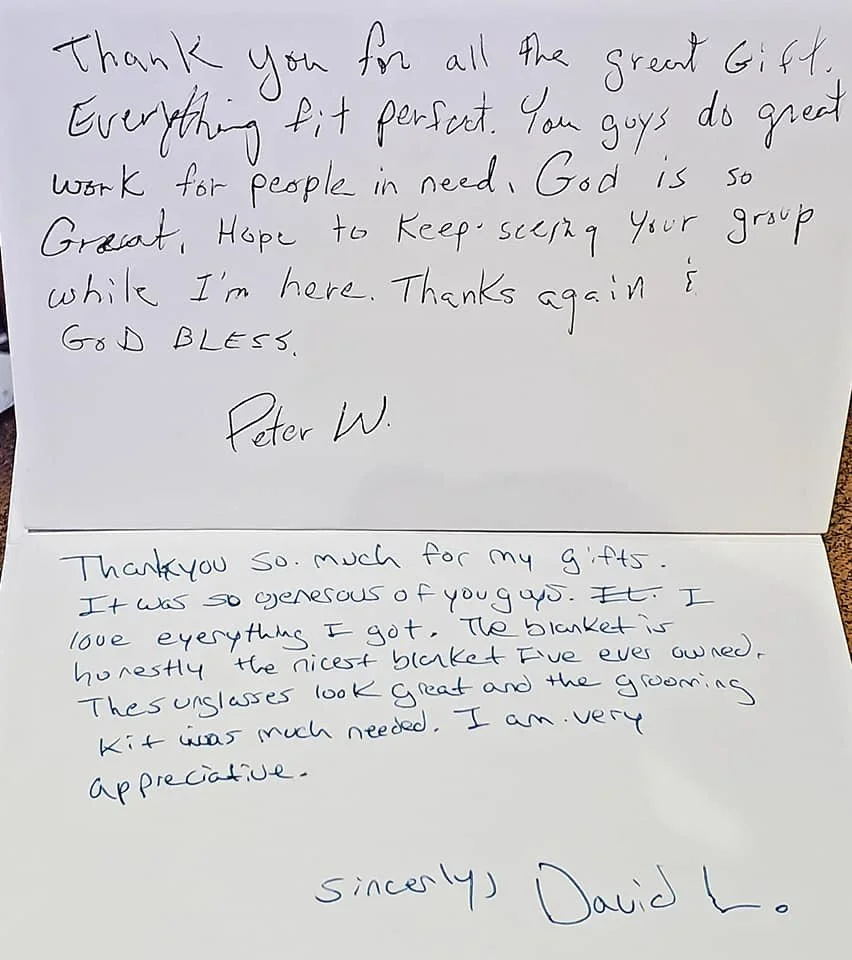 Thank you for all the great Gift.
Everything fit perfect. You guys do great
work for people in need. God is so
Great. Hope to keep seeing your group
while I'm here. Thanks again &
GoD BLESS.
Peter W.
Thankyou so. much for my gifts.
It was so generous of you guys. It. I
love everything I got. The blanket is
honestly the nicest blanket I've ever owned.
The sunglasses look great and the grooming
kit was much needed. I am very
appreciative.
sincerly, David L.